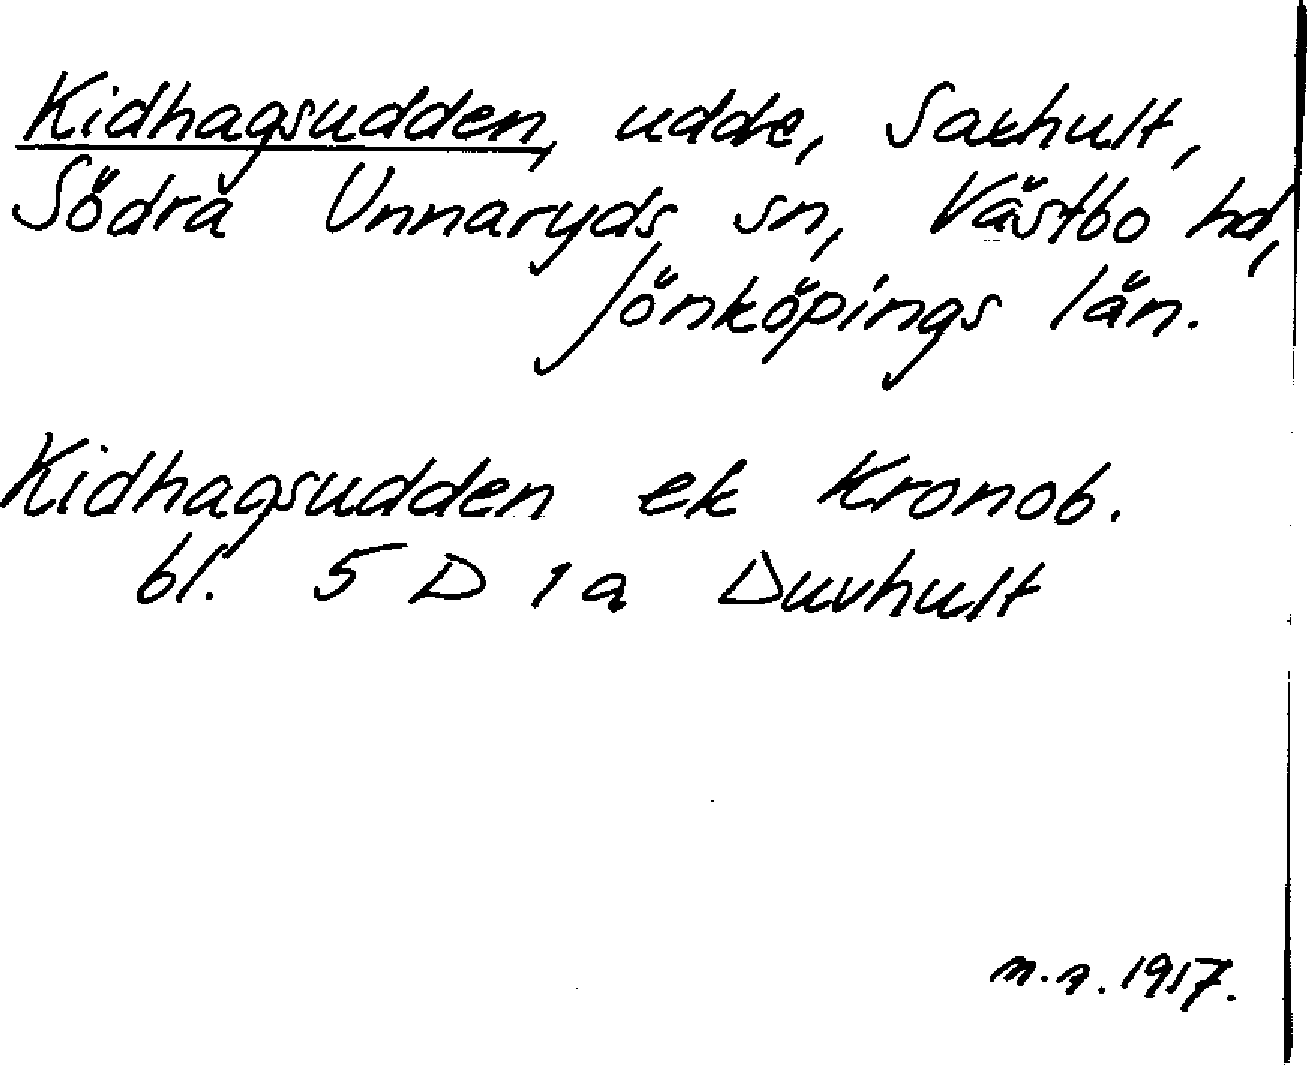 Kidhagsudden, udde, Saxhult,
Södra Unnaryds sn, Västbo hd,
Jönköpings län.
Kidhagsudden ek Kronob.
bl. 5 D 1 a Duvhult
1957.